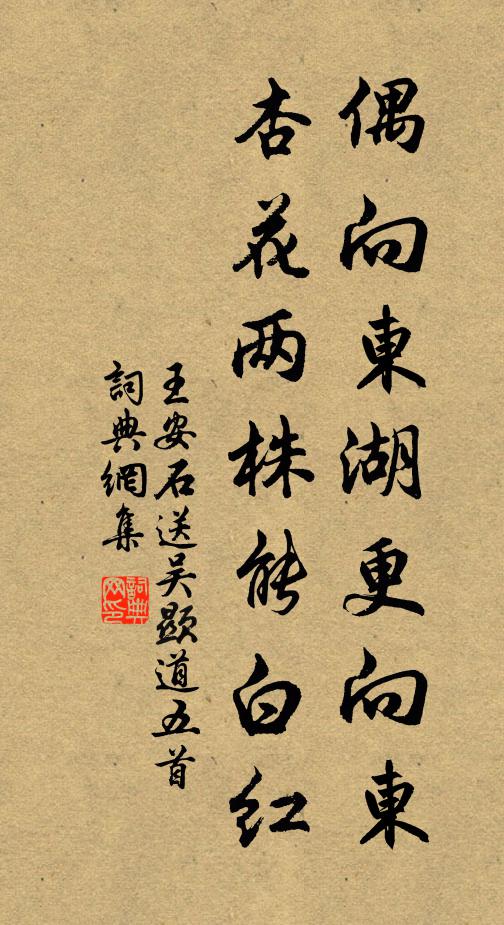 偶向東湖更向東
杏花两株能白红
王安石送吴顯道五首
詞典網集
詞典網印